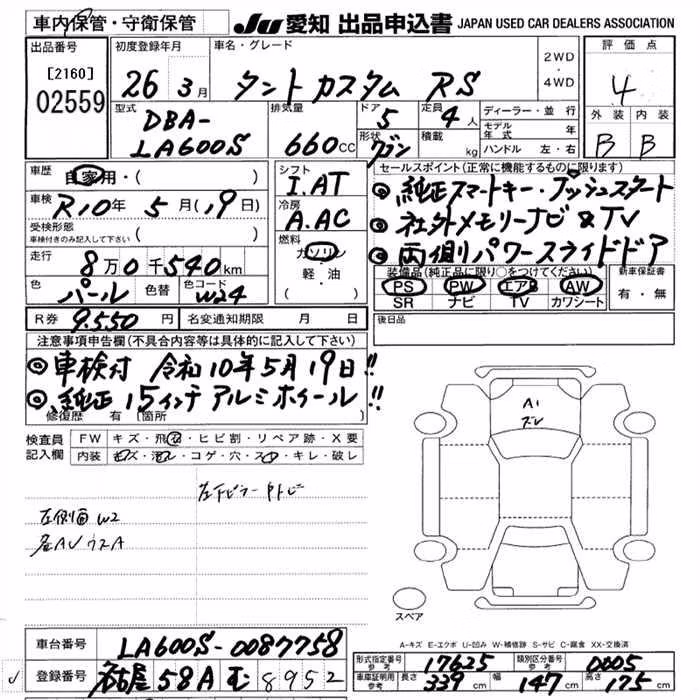 車内保管・守衛保管 JU 愛知 出品申込書 JAPAN USED CAR DEALERS ASSOCIATION
出品番号 [2160] 02559
初度登録年月 26 3月
車名・グレード タントカスタム RS
2WD・4WD
評価点 4
外装 B 内装 B
型式 DBA-LA600S
排気量 660cc
ドア 5
定員 4人
形状 ワゴン
積載 kg
ディーラー・並行
モデル年式 年
ハンドル 左・右
車歴 自家用・( )
車検 R10年 5月(19日)
受検形態 車検付きのみ記入して下さい ( )
走行 8万0千540km
色 パール 色替 色コード W24
R券 9,550円 名変通知期限 月 日
シフト I.AT
冷房 A.AC
燃料 ガソリン
軽・油
( )
セールスポイント(正常に機能するものに限ります)
◎純正スマートキー・プッシュスタート
◎社外メモリーナビ&TV
◎両側パワースライドドア
装備品(純正品に限り○をつけてください)
PS PW エアB AW
SR ナビ TV カワシート
新車保証書 有・無
後日品
注意事項申告欄(不具合内容等は具体的に記入して下さい)
◎車検付 令和10年5月19日!!
◎純正15インチアルミホイール!!
修復歴 有 〔箇所
検査員記入欄
FW キズ・飛石・ヒビ割・リペア跡・X要
内装 キズ・汚れ・コゲ・穴・スレ・キレ・破レ
左側面W2
A1
スペア
A-キズ E-エクボ U-凹み W-補修跡 S-サビ C-腐食 XX-交換済
車台番号 LA600S-0087758
登録番号 名古屋 58A む 8952
形式指定番号 参考 17625 類別区分番号 参考 0005
車庫証明用 参考 長さ 339cm 幅 147cm 高さ 175cm